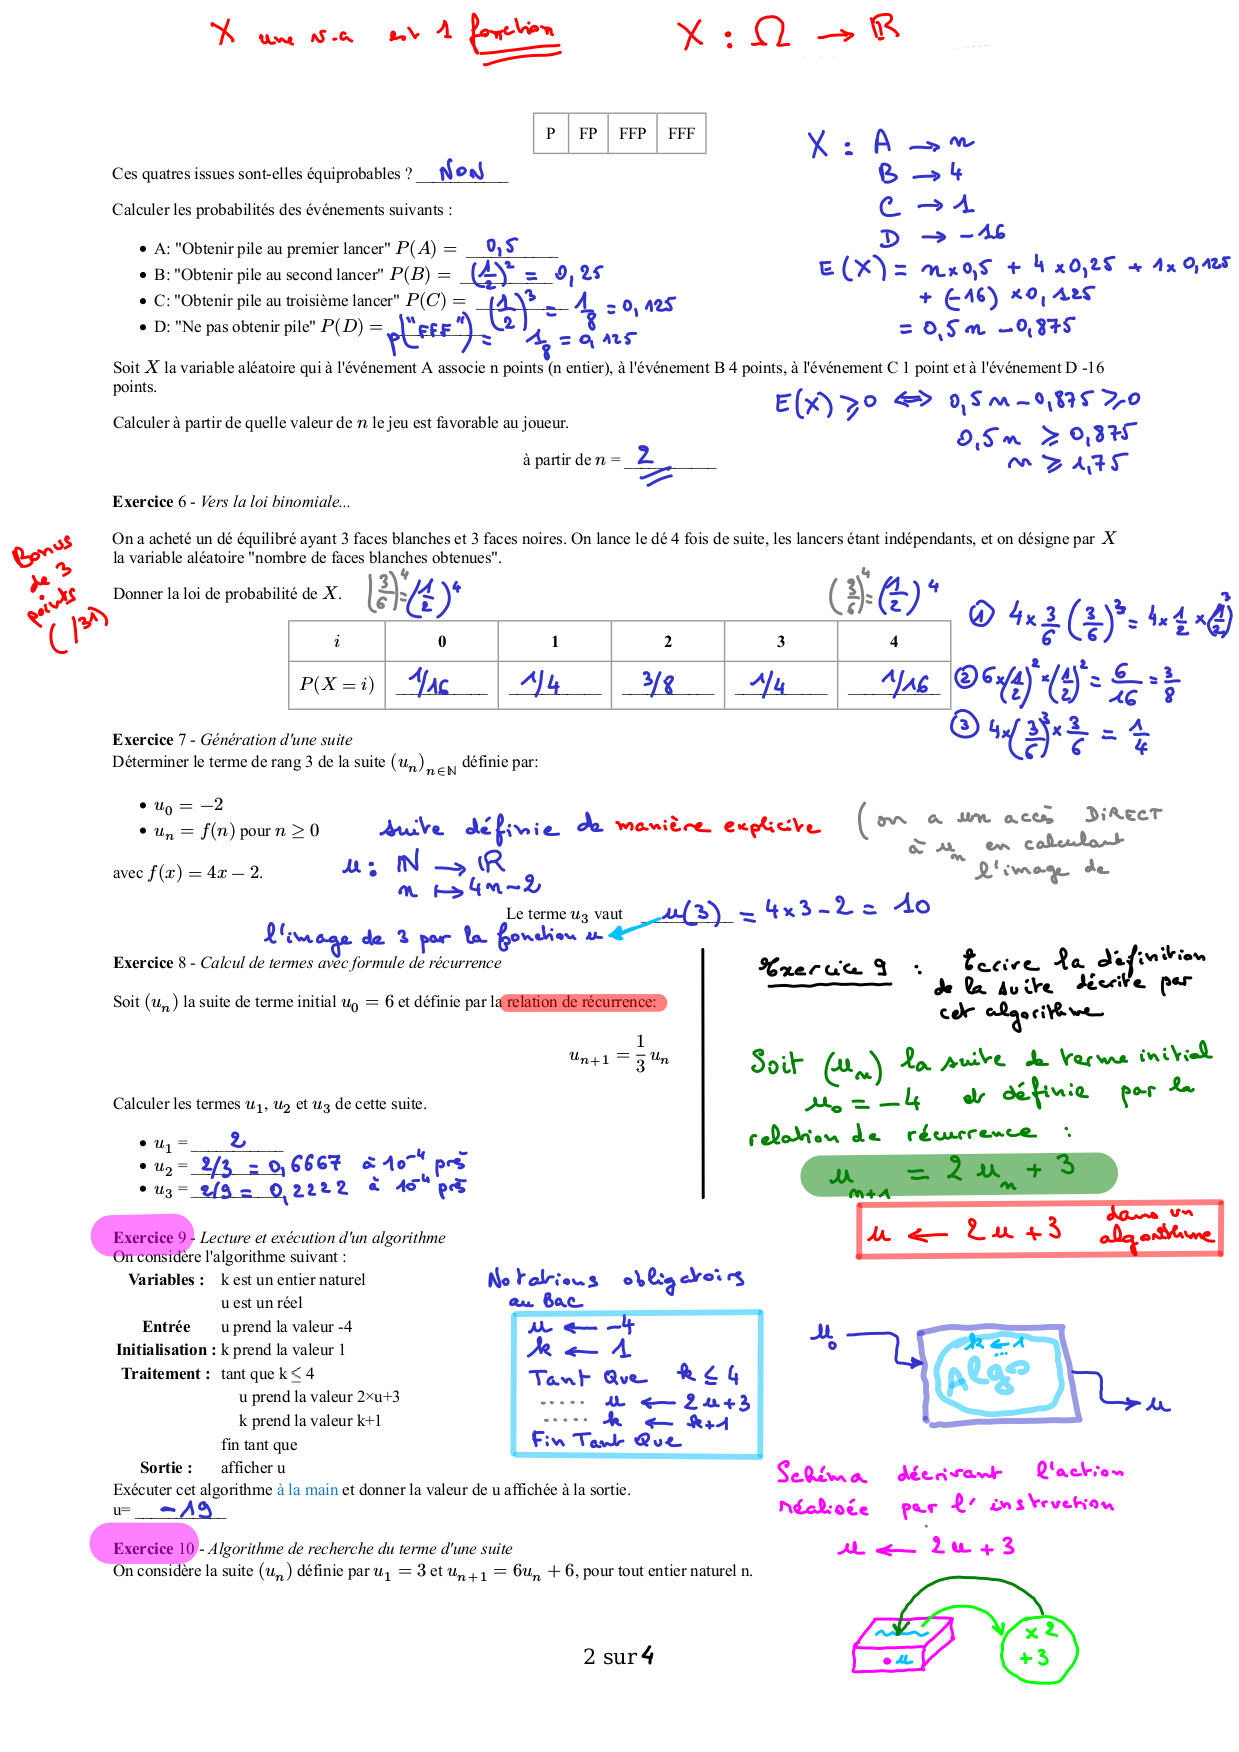 X une v.a est 1 fonction X : Ω → ℝ
P FP FFP FFF
Ces quatres issues sont-elles équiprobables ? NON
Calculer les probabilités des événements suivants :
• A: "Obtenir pile au premier lancer" P(A) = 0,5
• B: "Obtenir pile au second lancer" P(B) = (1/2)² = 0,25
• C: "Obtenir pile au troisième lancer" P(C) = (1/2)³ = 1/8 = 0,125
• D: "Ne pas obtenir pile" P(D) = p("FFF") = 1/8 = 0,125
X : A → n
B → 4
C → 1
D → -16
E(X) = n×0,5 + 4×0,25 + 1×0,125
+ (-16) × 0,125
= 0,5n - 0,875
Soit X la variable aléatoire qui à l'événement A associe n points (n entier), à l'événement B 4 points, à l'événement C 1 point et à l'événement D -16
points.
E(X) ⩾ 0 ⟺ 0,5n - 0,875 ⩾ 0
0,5n ⩾ 0,875
n ⩾ 1,75
Calculer à partir de quelle valeur de n le jeu est favorable au joueur.
à partir de n = 2
Exercice 6 - Vers la loi binomiale...
Bonus
de 3
points
(/31)
On a acheté un dé équilibré ayant 3 faces blanches et 3 faces noires. On lance le dé 4 fois de suite, les lancers étant indépendants, et on désigne par X
la variable aléatoire "nombre de faces blanches obtenues".
Donner la loi de probabilité de X. (3/6)⁴ = (1/2)⁴ (3/6)⁴ = (1/2)⁴
i 0 1 2 3 4
P(X = i) 1/16 1/4 3/8 1/4 1/16
① 4×3/6(3/6)³ = 4×1/2×(1/2)³
② 6×(1/2)²×(1/2)² = 6/16 = 3/8
③ 4×(3/6)³×3/6 = 1/4
Exercice 7 - Génération d'une suite
Déterminer le terme de rang 3 de la suite (uₙ)n∈ℕ définie par:
• u₀ = −2
• uₙ = f(n) pour n ≥ 0
suite définie de manière explicite (on a un accès DIRECT
à uₙ en calculant
l'image de
avec f(x) = 4x − 2.
u : ℕ → ℝ
n ↦ 4n-2
Le terme u₃ vaut u(3) = 4×3-2 = 10
l'image de 3 par la fonction u
Exercice 8 - Calcul de termes avec formule de récurrence
Soit (uₙ) la suite de terme initial u₀ = 6 et définie par la relation de récurrence:
uₙ₊₁ = 1/3 uₙ
Calculer les termes u₁, u₂ et u₃ de cette suite.
• u₁ = 2
• u₂ = 2/3 = 0,6667 à 10⁻⁴ près
• u₃ = 2/9 = 0,2222 à 10⁻⁴ près
Exercice 9 : Ecrire la définition
de la suite décrite par
cet algorithme
Soit (uₙ) la suite de terme initial
u₀ = -4 et définie par la
relation de récurrence :
uₙ₊₁ = 2uₙ + 3
u ← 2u+3 dans un
algorithme
Exercice 9 - Lecture et exécution d'un algorithme
On considère l'algorithme suivant :
Variables : k est un entier naturel
u est un réel
Entrée u prend la valeur -4
Initialisation : k prend la valeur 1
Traitement : tant que k ≤ 4
u prend la valeur 2×u+3
k prend la valeur k+1
fin tant que
Sortie : afficher u
Notations obligatoirs
au Bac
u ← -4
k ← 1
Tant Que k ≤ 4
..... u ← 2u+3
..... k ← k+1
Fin Tant Que
u₀
k ← 1
...
Algo
u
Exécuter cet algorithme à la main et donner la valeur de u affichée à la sortie.
u= -19
Schéma décrivant l'action
réalisée par l'instruction
u ← 2u+3
×2
+3
u
Exercice 10 - Algorithme de recherche du terme d'une suite
On considère la suite (uₙ) définie par u₁ = 3 et uₙ₊₁ = 6uₙ + 6, pour tout entier naturel n.
2 sur 4